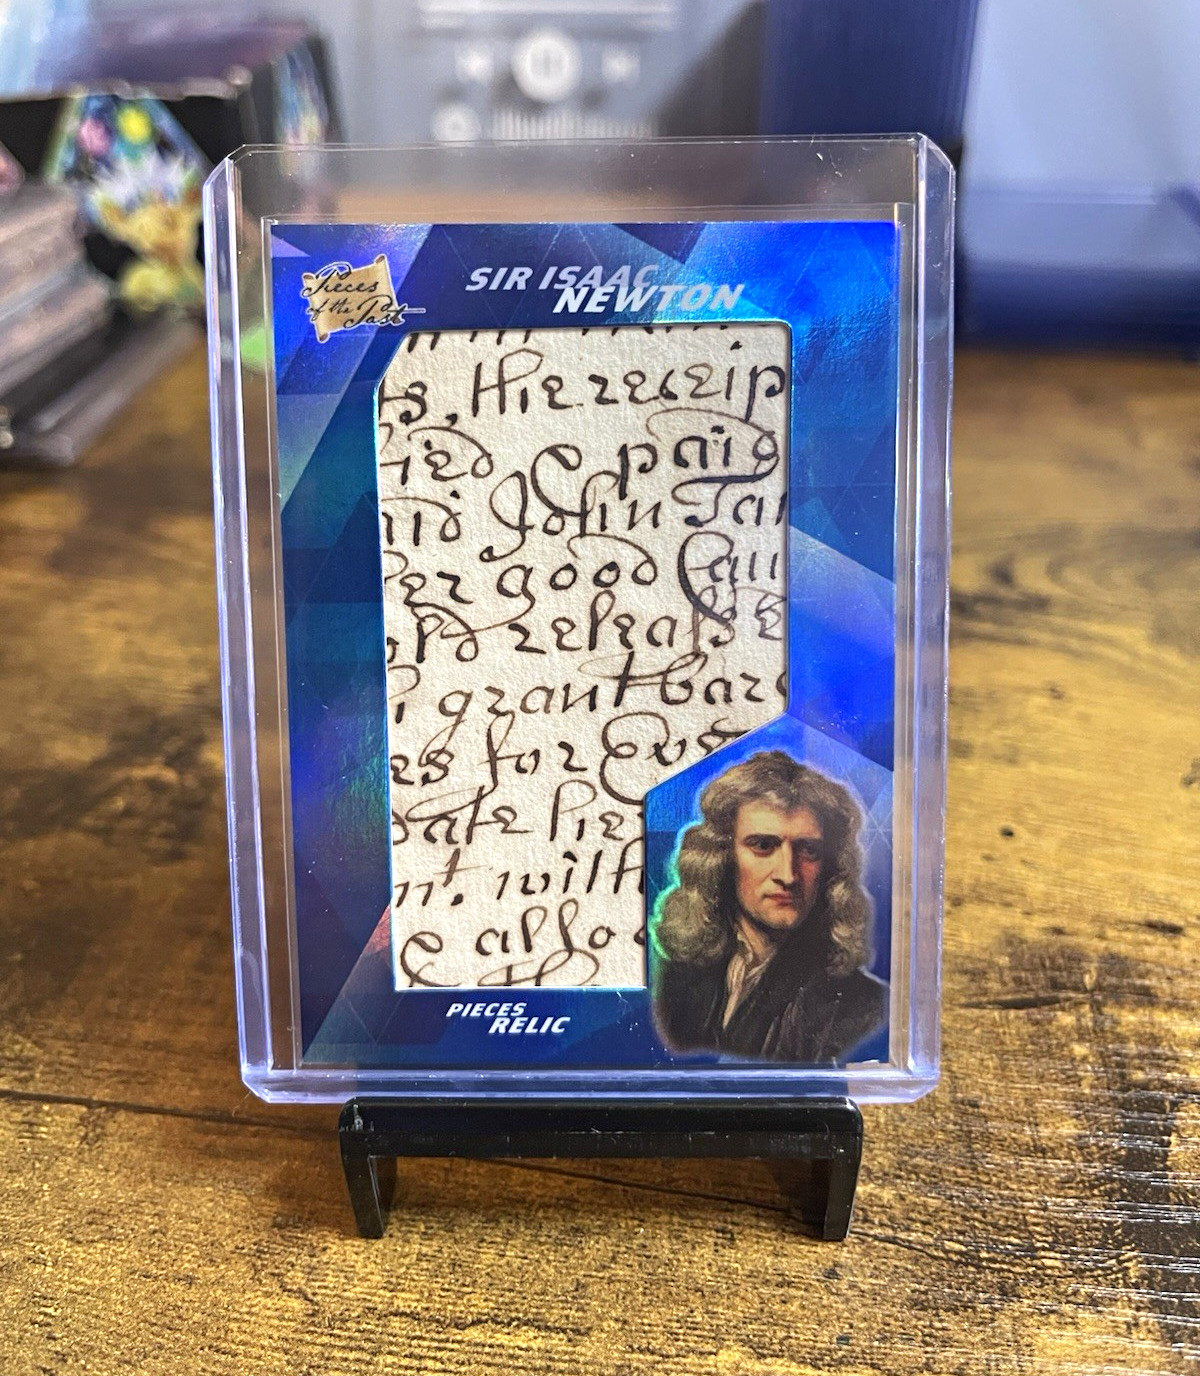 Pieces
of the Past
SIR ISAAC
NEWTON
s, the receip
ied
paid
aid John Tan
er good
old release
grant barg
es for
date her
nt. with
also
PIECES
RELIC